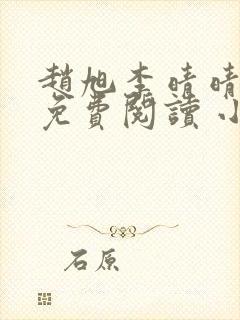 趙旭李晴晴
免費閱讀小
石原